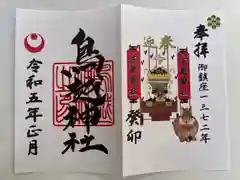 奉拝
御鎮座一三七二年
迎春
癸卯
鳥越神社
令和五年正月